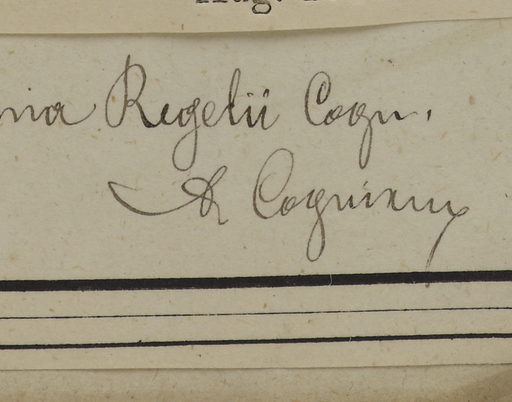 nia Regelii Cogn.
A. Cogniaux